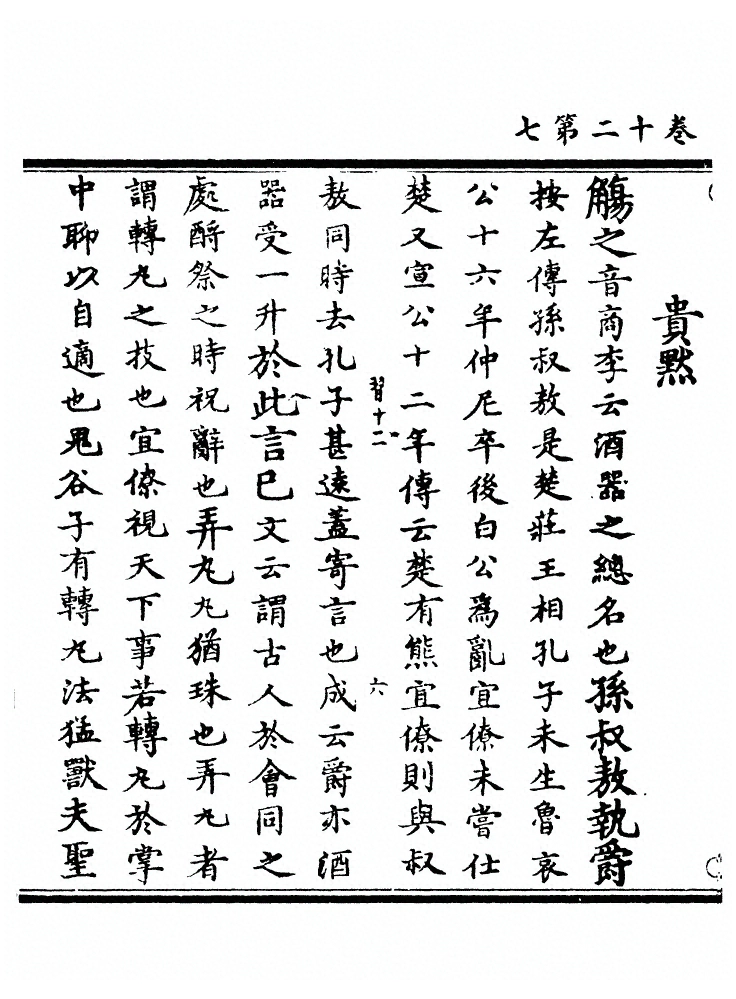 七第二十卷
貴黙
觴之音商李云酒器之總名也孫叔敖執爵
按左傳孫叔敖是楚莊王相孔子未生魯哀
公十六年仲尼卒後白公為亂宜僚未嘗仕
楚又宣公十二年傳云楚有熊宜僚則與叔
習十二
六
敖同時去孔子甚遠蓋寄言也成云爵亦酒
器受一升於此言已文云謂古人於會同之
處酹祭之時祝辭也弄丸丸猶珠也弄丸者
謂轉丸之技也宜僚視天下事若轉丸於掌
中聊以自適也鬼谷子有轉丸法猛獸夫聖